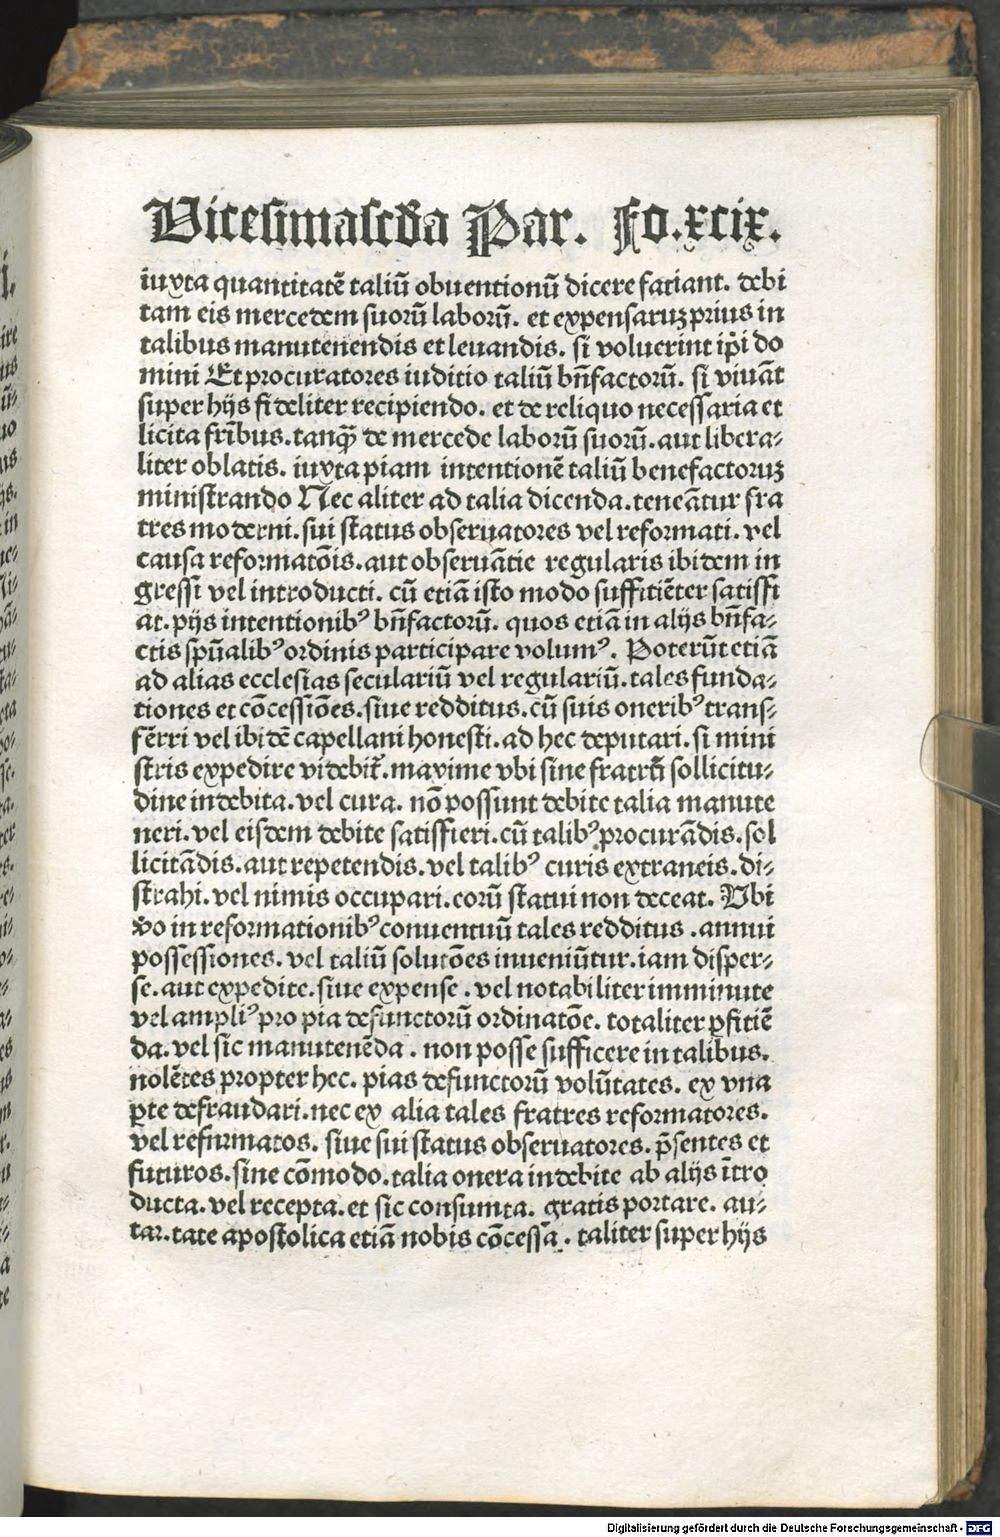 Vicesimascd̄a Par. Fo.xcix.
iuxta quantitatē taliū obuentionū dicere fatiant. debi
tam eis mercedem suorū laborū. et expensaruꝫ prius in
talibus manutenendis et leuandis. si voluerint ip̄i do
mini Et procuratores iuditio taliū bn̄factorū. si viuāt
super hijs fideliter recipiendo. et de reliquo necessaria et
licita frībus. tanqꝫ̄ de mercede laborū suorū. aut libera⸗
liter oblatis. iuxta piam intentionē taliū benefactoruꝫ
ministrando Nec aliter ad talia dicenda. teneātur fra
tres moderni. sui status obseruatores vel reformati. vel
causa reformatōis. aut obseruātie regularis ibidem in
gressi vel introducti. cū etiā isto modo suffitiēter satisfi
at. pijs intentionibꝰ bn̄factorū. quos etiā in alijs bn̄fa⸗
ctis sp̄ualibꝰ ordinis participare volumꝰ. Poterūt etiā
ad alias ecclesias seculariū vel regulariū. tales funda⸗
tiones et cōcessiōes. siue redditus. cū suis oneribꝰ trans⸗
fērri vel ibidē capellani honesti. ad hec deputari. si mini
stris expedire videbit̄. maxime vbi sine fratrū sollicitu⸗
dine indebita. vel cura. nō possunt debite talia manute
neri. vel eisdem debite satisfieri. cū talibꝰ procurādis. sol
licitādis. aut repetendis. vel talibꝰ curis extraneis. di⸗
strahi. vel nimis occupari. eorū statui non deceat. Vbi
v̄o in reformationibꝰ conuentuū tales redditus . annui
possessiones. vel taliū solutōes inueniūtur. iam disper⸗
se. aut expedite. siue expense . vel notabiliter imminute
vel ampliꝰ pro pia defunctorū ordinatōe. totaliter ꝑfitiē
da. vel sic manutenēda . non posse sufficere in talibus.
nolētes propter hec. pias defunctorū volūtates. ex vna
ꝑte defraudari. nec ex alia tales fratres reformatores.
vel refurmatos. siue sui status obseruatores. p̄sentes et
futuros. sine cōmodo. talia onera indebite ab alijs ītro
ducta. vel recepta. et sic consumta. gratis portare. au⸗
tar. tate apostolica etiā nobis cōcessa . taliter super hijs
Digitalisierung gefördert durch die Deutsche Forschungsgemeinschaft - DFG